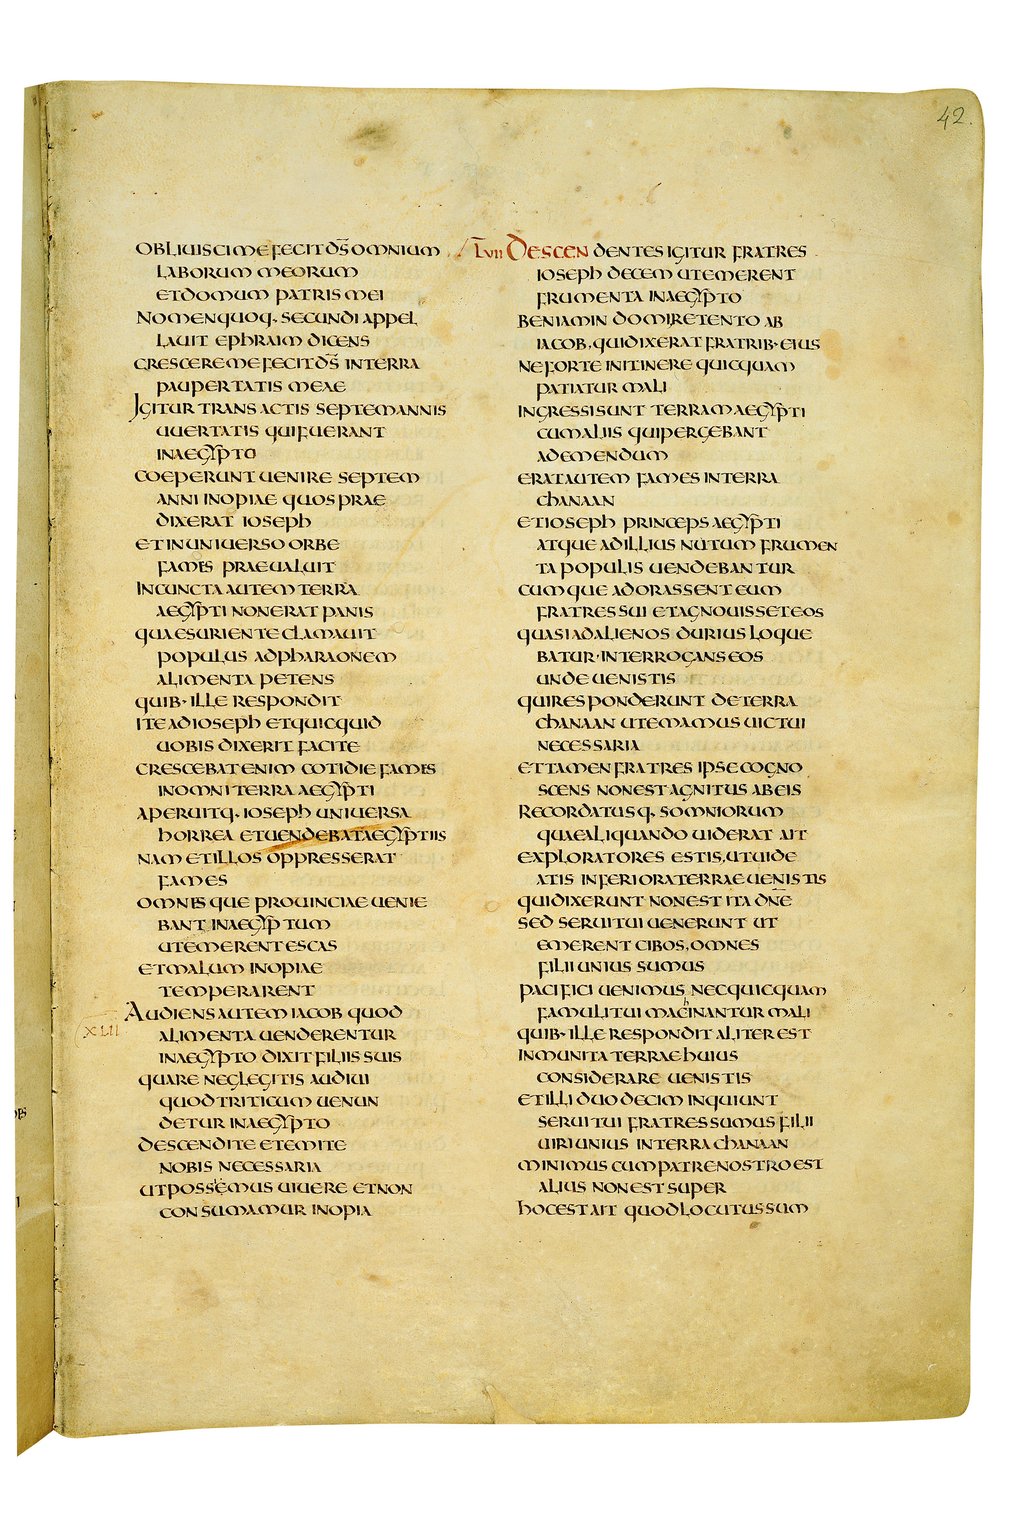 42.
OBLIUISCI ME FECIT D̅S̅ OMNIUM
LABORUM MEORUM
ET DOMUM PATRIS MEI
NOMENQUOQ· SECUNDI APPEL
LAUIT EPHRAIM DICENS
CRESCERE ME FECIT D̅S̅ IN TERRA
PAUPERTATIS MEAE
IGITUR TRANSACTIS SEPTEM ANNIS
UUERTATIS QUI FUERANT
IN AEGYPTO
COEPERUNT UENIRE SEPTEM
ANNI INOPIAE QUOS PRAE
DIXERAT IOSEPH
ET IN UNIUERSO ORBE
FAMES PRAEUALUIT
IN CUNCTA AUTEM TERRA
AEGYPTI NON ERAT PANIS
QUA ESURIENTE CLAMAUIT
POPULUS AD PHARAONEM
ALIMENTA PETENS
QUIB· ILLE RESPONDIT
ITE AD IOSEPH ET QUICQUID
UOBIS DIXERIT FACITE
CRESCEBAT ENIM COTIDIE FAMES
IN OMNI TERRA AEGYPTI
APERUITQ· IOSEPH UNIUERSA
HORREA ET UENDEBAT AEGYPTIIS
NAM ET ILLOS OPPRESSERAT
FAMES
OMNESQUE PROUINCIAE UENIE
BANT IN AEGYPTUM
UT EMERENT ESCAS
ET MALUM INOPIAE
TEMPERARENT
AUDIENS AUTEM IACOB QUOD
XLII
ALIMENTA UENDERENTUR
IN AEGYPTO DIXIT FILIIS SUIS
QUARE NEGLEGITIS AUDIUI
QUOD TRITICUM UENUN
DETUR IN AEGYPTO
DESCENDITE ET EMITE
NOBIS NECESSARIA
UT POSSEMUS UIUERE ET NON
CONSUMAMUR INOPIA
LVII DESCENDENTES IGITUR FRATRES
IOSEPH DECEM UT EMERENT
FRUMENTA IN AEGYPTO
BENIAMIN DOMI RETENTO AB
IACOB, QUI DIXERAT FRATRIB· EIUS
NE FORTE IN ITINERE QUICQUAM
PATIATUR MALI
INGRESSI SUNT TERRAM AEGYPTI
CUM ALIIS QUI PERGEBANT
AD EMENDUM
ERAT AUTEM FAMES IN TERRA
CHANAAN
ET IOSEPH PRINCEPS AEGYPTI
ATQUE AD ILLIUS NUTUM FRUMEN
TA POPULIS UENDEBANTUR
CUMQUE ADORASSENT EUM
FRATRES SUI ET AGNOUISSET EOS
QUASI AD ALIENOS DURIUS LOQUE
BATUR· INTERROGANS EOS
UNDE UENISTIS
QUI RESPONDERUNT DE TERRA
CHANAAN UT EMAMUS UICTUI
NECESSARIA
ET TAMEN FRATRES IPSE COGNO
SCENS NON EST AGNITUS AB EIS
RECORDATUSQ· SOMNIORUM
QUAE ALIQUANDO UIDERAT AIT
EXPLORATORES ESTIS, UT UIDE
ATIS INFERIORA TERRAE UENISTIS
QUI DIXERUNT NON EST ITA DN̅E
SED SERUI TUI UENERUNT UT
EMERENT CIBOS, OMNES
FILII UNIUS SUMUS
PACIFICI UENIMUS NEC QUICQUAM
FAMULI TUI MACHINANTUR MALI
QUIB· ILLE RESPONDIT ALITER EST
INMUNITA TERRAE HUIUS
CONSIDERARE UENISTIS
ET ILLI DUODECIM INQUIUNT
SERUI TUI FRATRES SUMUS FILII
UIRI UNIUS IN TERRA CHANAAN
MINIMUS CUM PATRE NOSTRO EST
ALIUS NON EST SUPER
HOC EST AIT QUOD LOCUTUS SUM